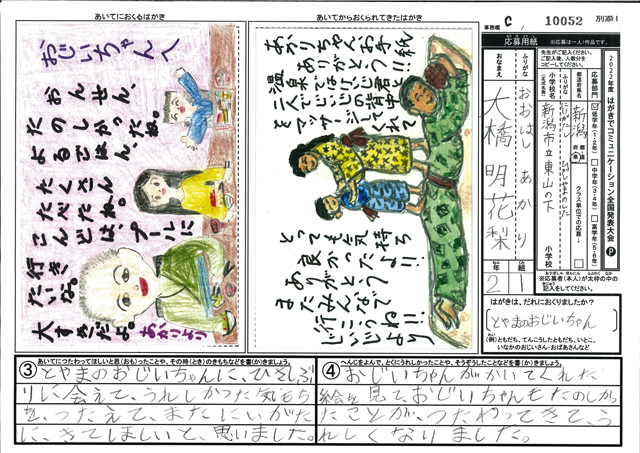 あいてにおくるはがき
あいてからおくられてきたはがき
事務欄 C / 10052 別添1
おじいちゃんへ
おんせん、
たのしかったね。
よるごはん、
たくさん
たべたね。
こんどは、プールに
行きたいな。
大すきだよ。
あかりより
あかりちゃんお手紙
ありがとう!!
温泉では心君と
二人でじいじの背中
をマッサージしてくれ
とっても気持ち
良かったよ!!
ありがとう
またみんなで
行こうね!!
応募用紙
※応募は一人1作品です。
先生がご記入ください。
ご記入後、人数分を
コピーしてください。
ふりがな おおはし あかり
おなまえ 大橋 明花梨
2年 1組
2022年度 はがきでコミュニケーション全国発表大会
応募部門 ☑低学年(1・2年) □中学年(3・4年) □高学年(5・6年)
都道府県名 新潟 県
クラス単位での応募
小学校名 新潟市立東山の下 小学校
※応募者(本人)が太枠の中の
記入をしてください。
はがきは、だれにおくりましたか?
とやまのおじいちゃん
(例)ともだち、てんこうしたともだち、いとこ、
いなかのおじいさん・おばあさんなど
あいてにつたわってほしいと思(おも)ったことや、その時(とき)のきもちなどを書(か)きましょう。
③とやまのおじいちゃんに、ひさしぶ
りに会えて、うれしかった気もち
を、つたえて、またにいがた
に、きてほしいと、思いました。
へんじをよんで、とくにうれしかったことや、そうぞうしたことなどを書(か)きましょう。
④おじいちゃんがかいてくれた
絵を見て、おじいちゃんもたのしかっ
たことが、つたわってきて、う
れしくなりました。